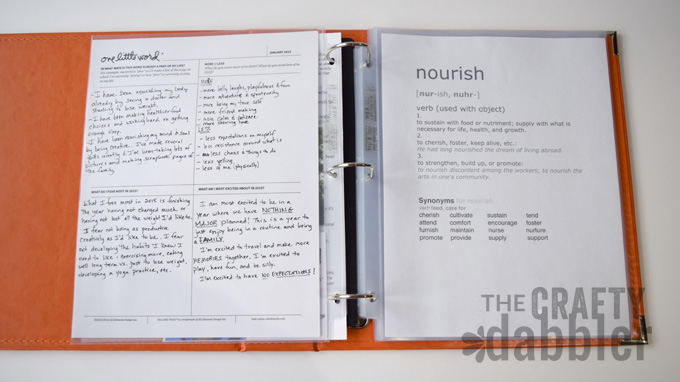 one little word
JANUARY 2015
IN WHAT WAYS IS THIS WORD ALREADY A PART OF MY LIFE?
MORE / LESS
- I have been nourishing my body
already by seeing a doctor and
starting to lose weight.
- I have been making healthier food
choices and working hard on getting
enough sleep.
I have been nourishing my mind & soul
by being creative. I've made several
gifts recently & I've been taking lots of
pictures and making scrapbook pages of
the family.
more
- more belly laughs, playfulness & fun
- more adventure & spontaneity
- more being my true self
- more friend making
- more calm & patience
- more saving time
less
- less expectations on myself
- less resistance around what is
- less chaos & things to do
- less yelling
- less of me (physically)
WHAT DO I FEAR MOST IN 2015?
What I fear most in 2015 is finishing
the year having not changed much or
having not lost all the weight I'd like to.
I fear not being as productive
creatively as I'd like to be. I fear
not developing the habits I know I
need to like - exercising more, eating
well long term vs. just to lose weight,
developing a yoga practice, etc.
WHAT AM I MOST EXCITED ABOUT IN 2015?
I am most excited to be in a
year where we have NOTHING
MAJOR planned! This is a year to
just enjoy being in a routine and being
a FAMILY.
I'm excited to travel and make more
MEMORIES together. I'm excited to
play, have fun, and be silly.
I'm excited to have NO EXPECTATIONS!
nourish
[nur-ish, nuhr-]
verb (used with object)
1.
to sustain with food or nutriment; supply with what is
necessary for life, health, and growth.
2.
to cherish, foster, keep alive, etc.:
He had long nourished the dream of living abroad.
3.
to strengthen, build up, or promote:
to nourish discontent among the workers; to nourish the
arts in one's community.
Synonyms for nourish
verb feed, care for
cherish cultivate sustain tend
attend comfort encourage foster
furnish maintain nurse nurture
promote provide supply support
THE CRAFTY
dabbler